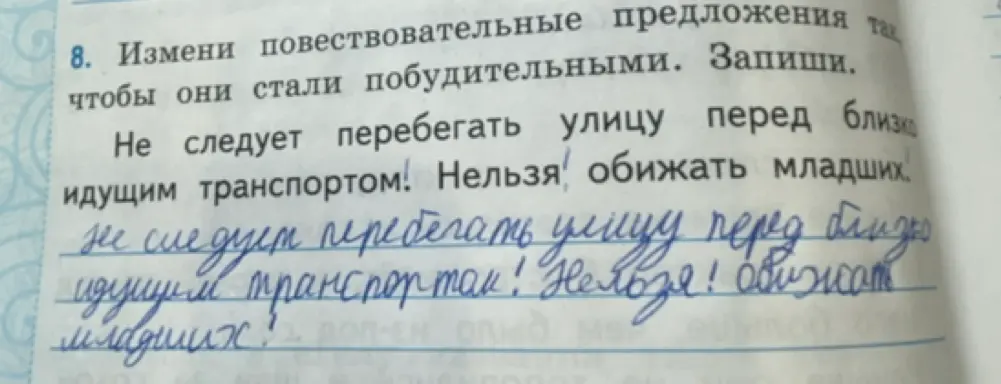 8. Измени повествовательные предложения так,
чтобы они стали побудительными. Запиши.
Не следует перебегать улицу перед близко
идущим транспортом! Нельзя! обижать младших!
Не следует перебегать улицу перед близко
идущим транспортом! Нельзя! обижать
младших!